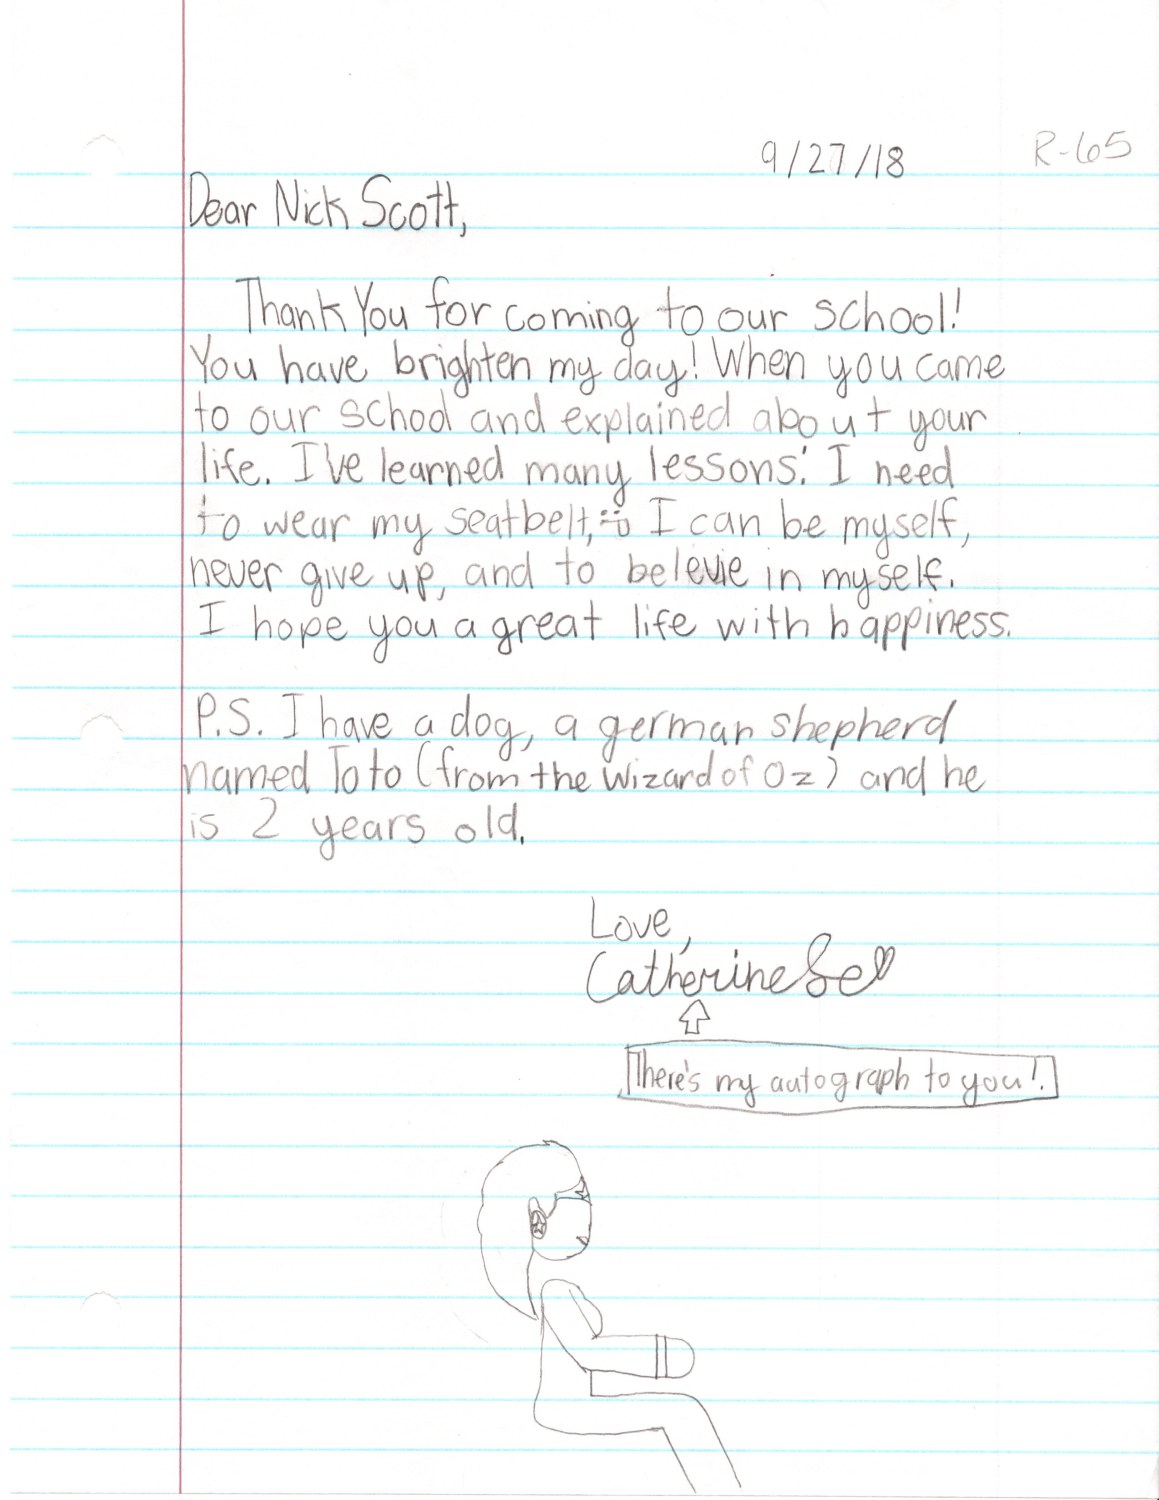 9/27/18 R-65
Dear Nick Scott,
Thank You for coming to our school!
You have brighten my day! When you came
to our school and explained about your
life. I've learned many lessons: I need
to wear my seatbelt, I can be myself,
never give up, and to belevie in myself.
I hope you a great life with happiness.
P.S. I have a dog, a german shepherd
named Toto (from the Wizard of Oz) and he
is 2 years old.
Love,
Catherine
There's my autograph to you!